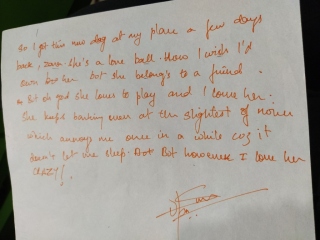 So I got this new dog at my place a few days
back, Zara. She's a love ball. How I wish I'd
own but her but she belongs to a friend.
But oh god she loves to play and I love her.
She keeps barking even at the slightest of noises
which annoys me once in a while coz it
doesn't let me sleep. But however I love her
CRAZY!